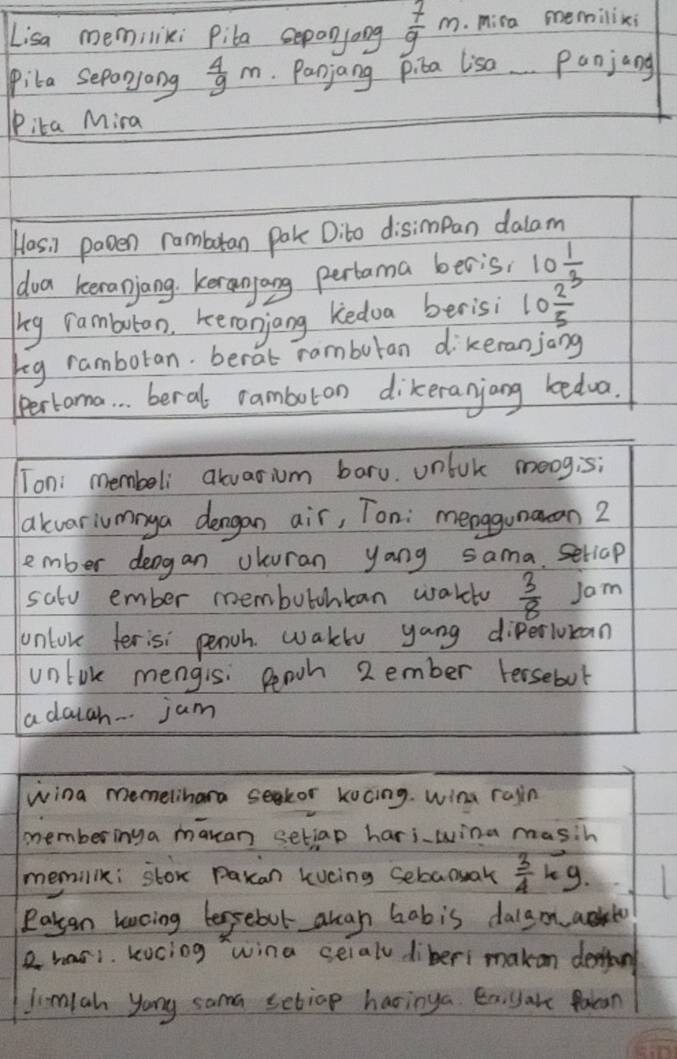 Lisa memiliki Pita sepanjang 7/9 m. Mira memiliki
Pita sepanjang 4/9 m. Panjang Pita lisa ... Panjang
Pita Mira
Hasil panen rambutan Pak Dito disimpan dalam
dua keranjang. keranjang pertama berisi 10 1/3
kg rambutan, keranjang kedua berisi 10 2/5
kg rambutan. berat rambutan dikeranjang
Pertama... berat rambutan dikeranjang kedua.
Toni membeli akuarium baru. untuk mengisi
akuariumnya dengan air, Toni menggunakan 2
ember dengan ukuran yang sama. setiap
satu ember membutuhkan waktu 3/8 Jam
untuk terisi penuh. waktu yang diperlukan
untuk mengisi penuh 2 ember tersebut
adalah... jam
Wina memelihara seekor kucing. wina rajin
memberinya makan setiap hari. wina masih
memiliki stok Pakan kucing sebanyak 3/4 kg.
Pakan kucing tersebut akan habis dalam waktu
2 hari. kucing wina selalu diberi makan dengan
Jumlah yang sama setiap harinya. Banyak Pakan